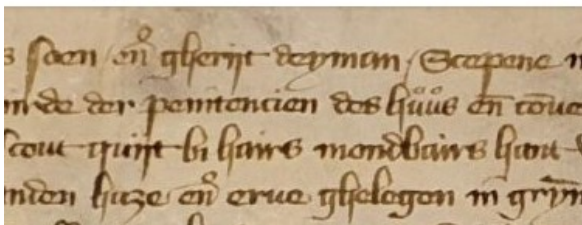 s soen en̄ gherijt deyman / Scepene
inde der penitencien des huͦuͦs en̄ cōue
scout quijt bi hairs mondbairs hant
nden huze en̄ erue gheleghen in gryn